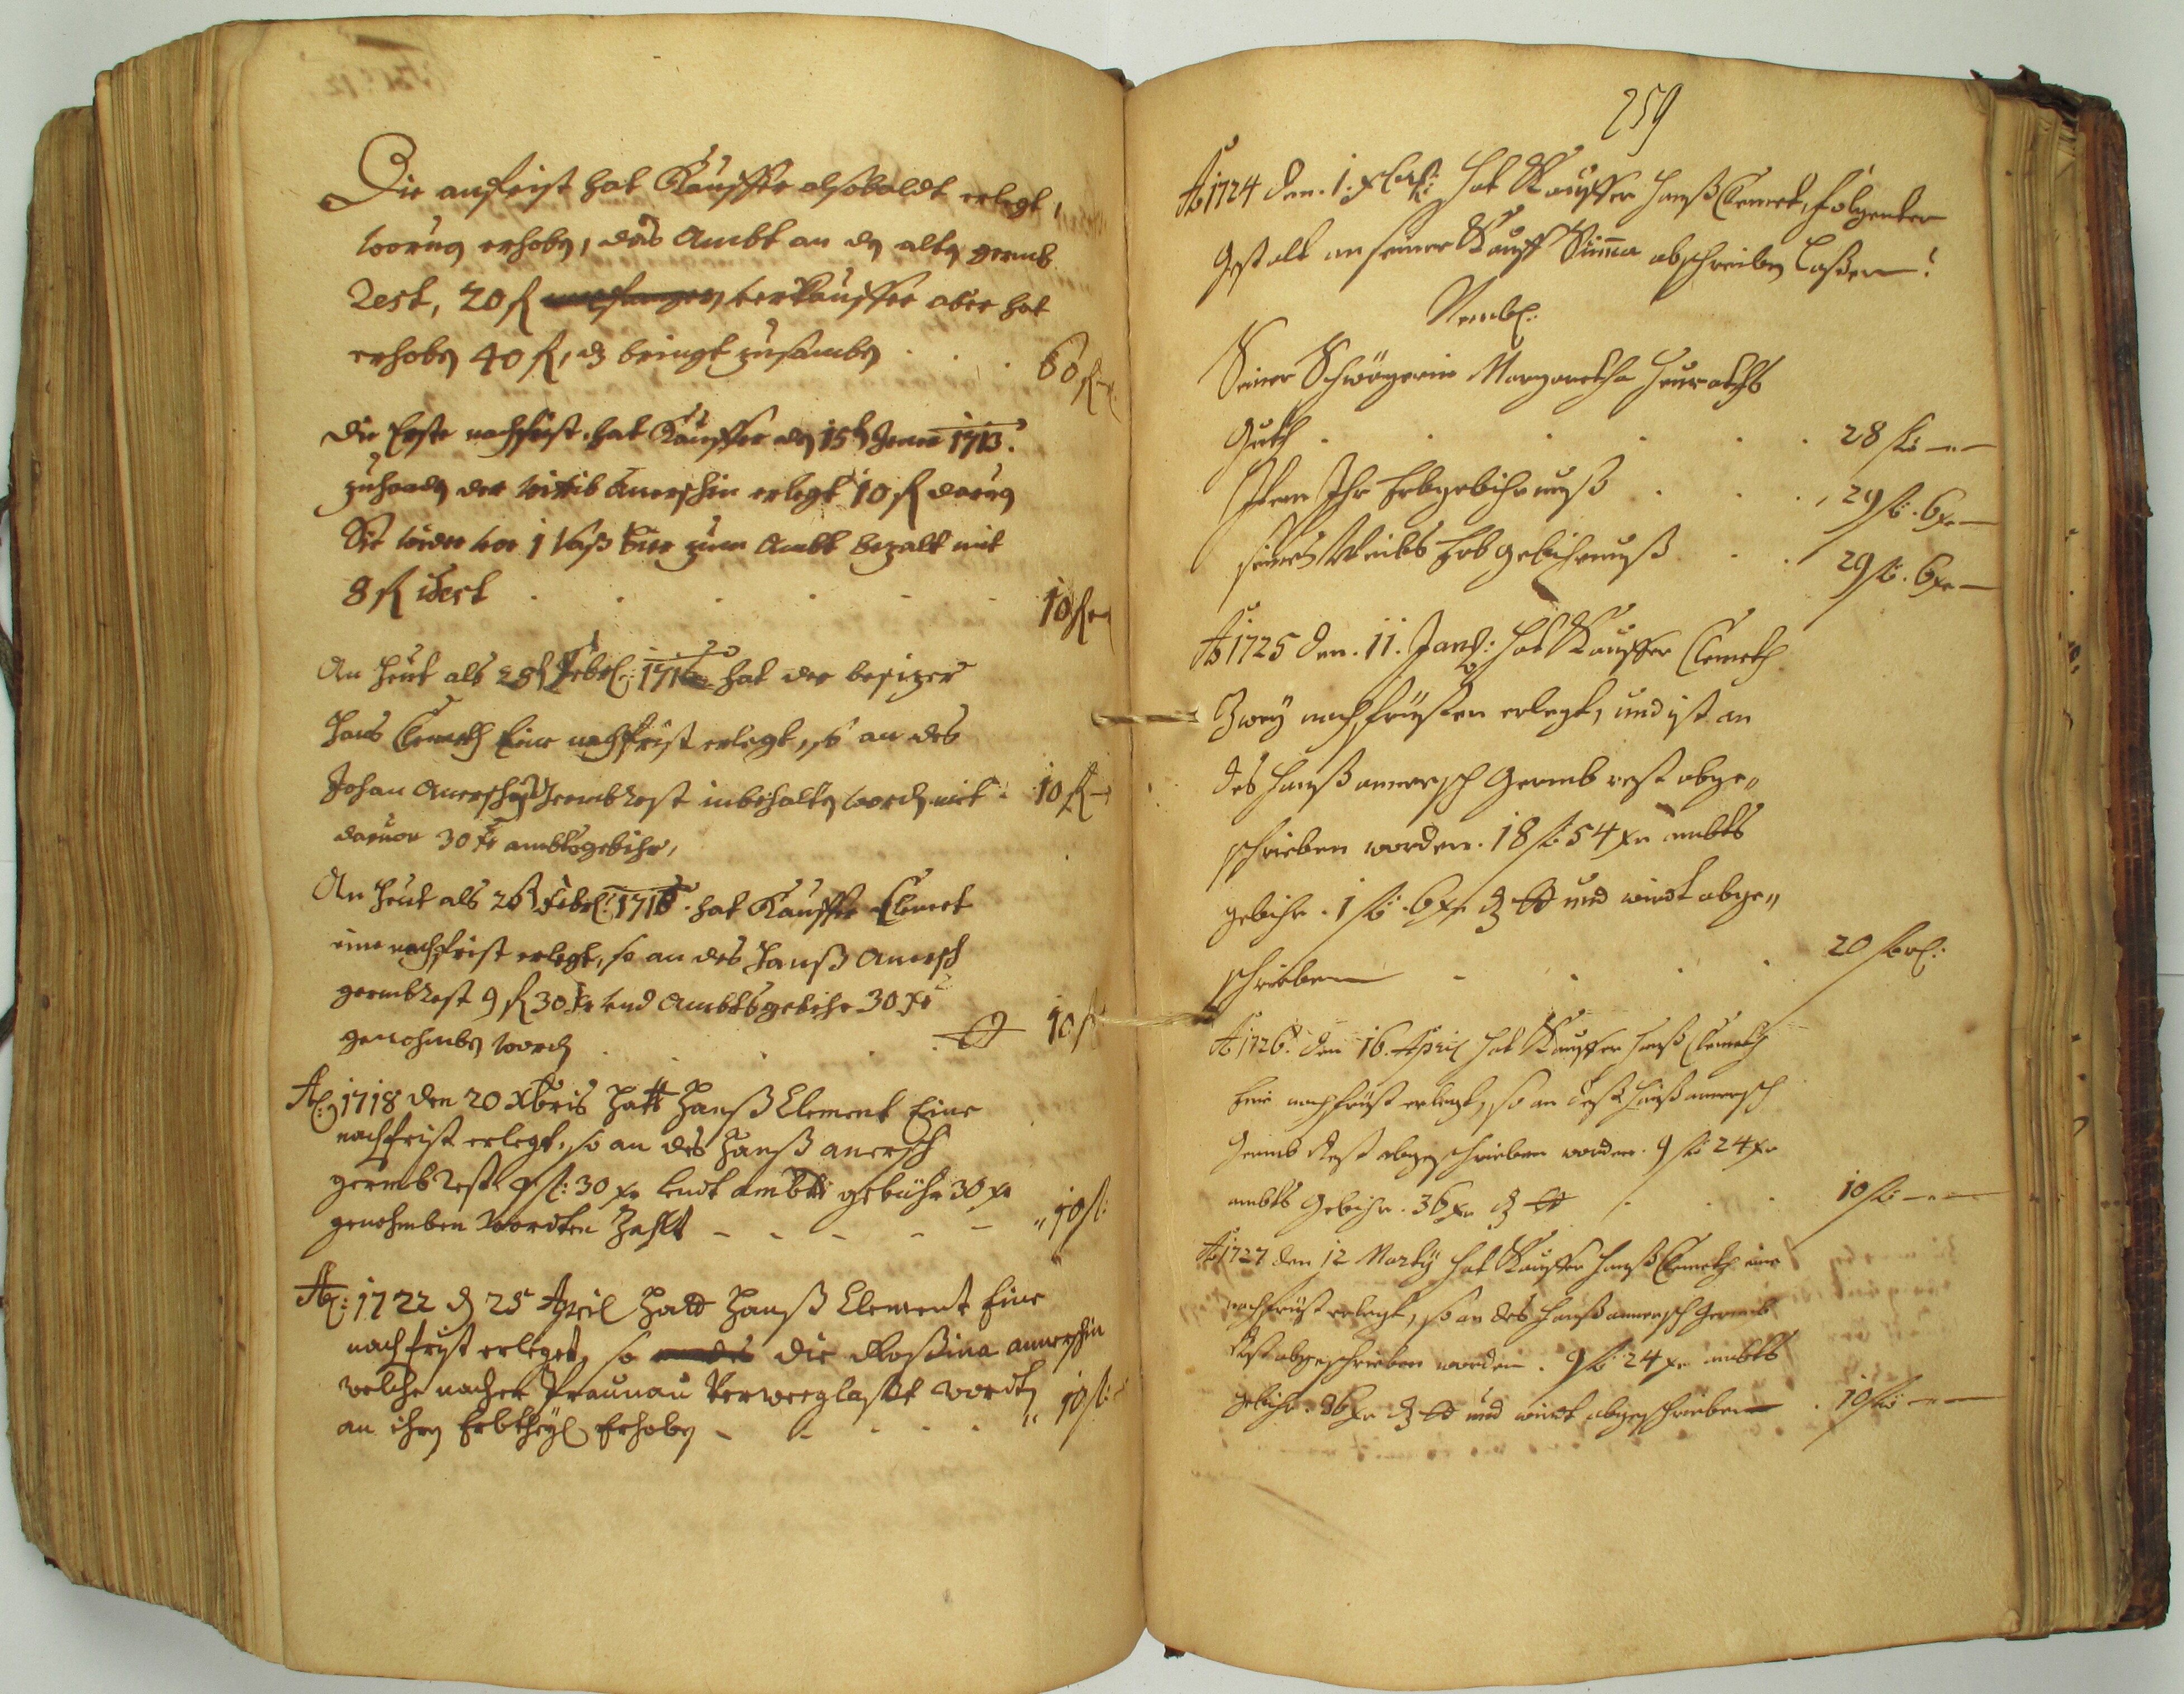 Die anfrist hat Kauffer alsobaldt erlegt,
worvon erhoben, das Ambt an den alten germb
Rest, 20 fl verkauffer aber hat
erhoben 40 fl, dz bringt zusamben . . . 60 fl
die Erste nachfrist hat Kauffer den 15t Jener 1713.
zuhanden der Wittib Anershin erlegt 10 fl davon
Sie wider vor 1 Vaß Bier zum Ambt bezalt mit
8 fl idest . . . . . . 10 fl
An heut als 28t Febr: hat der besizer
Hans Clemeth Eine nachfrist erlegt, so an des
Johan Anershen germbrest inbehalten worden mit . 10 fl
darvon 30 xr ambtsgebihr,
An heut als 26t Febr: hat Kauffer Clemet
eine nachfrist erlegt, so an des Hanß Anersch
germbrest 9 fl 30 xr und Ambtsgebihr 30 xr
genohmben worden . . . . 10 fl
Ao: 1718 den 20 Xbris hatt Hanß Clement Eine
nachfrist erlegt, so an des Hanß anersch
germbrest 9 fl: 30 xr undt ambts gebühr 30 xr
genohmben wordten Zahlt - - - - - " 10 fl:
Ao: 1722 d 25 April hatt Hanß Clement Eine
nachfryst erleget, so die Rossina anershin
welche nacher Praunau verweeglaßt wordten
an ihren Erbtheyl Erhoben - - . . . " 10 fl:
259
Ao 1724 den. 1. hat Kauffer Hanß Clemet, folgenter
Gestalt an seiner Kauff Suma abschreiben laßen:
Nembl:
Seiner Schwögerin Margaretha Heuraths
Guth . . . . . . 28 fl —
Item Ihr Erbgebihrnuß . . . 29 fl. 6 xr —
seines Weibs Erb gebihrnuß . . 29 fl. 6 xr —
Ao 1725 den. 11. Jan: hat Kauffer Clemeth
Zwey nachfrüsten erlegt, und ist an
des Hanß anersch Germb rest abge„
schrieben worden. 18 fl 54 xr ambts
gebihr. 1 fl. 6 xr und wirdt abge„
schrieben - . . . 20 fl
Ao 1726. den 16. April hat Kauffer Hanß Clemeth
Eine nachfrüst erlegt, so an deß Hanß anersch
Germb Rest abgeschrieben worden. 9 fl 24 xr
ambts Gebihr. 36 xr . . . 10 fl —
Ao 1727 den 12 Marty hat Kauffer Hanß Clemeth eine
nachfrüst erlegt, so an des Hanß anersch Germb
Rest abgeschrieben worden. 9 fl 24 xr ambts
gebihr. 36 xr und wirdt abgeschrieben . 10 fl —